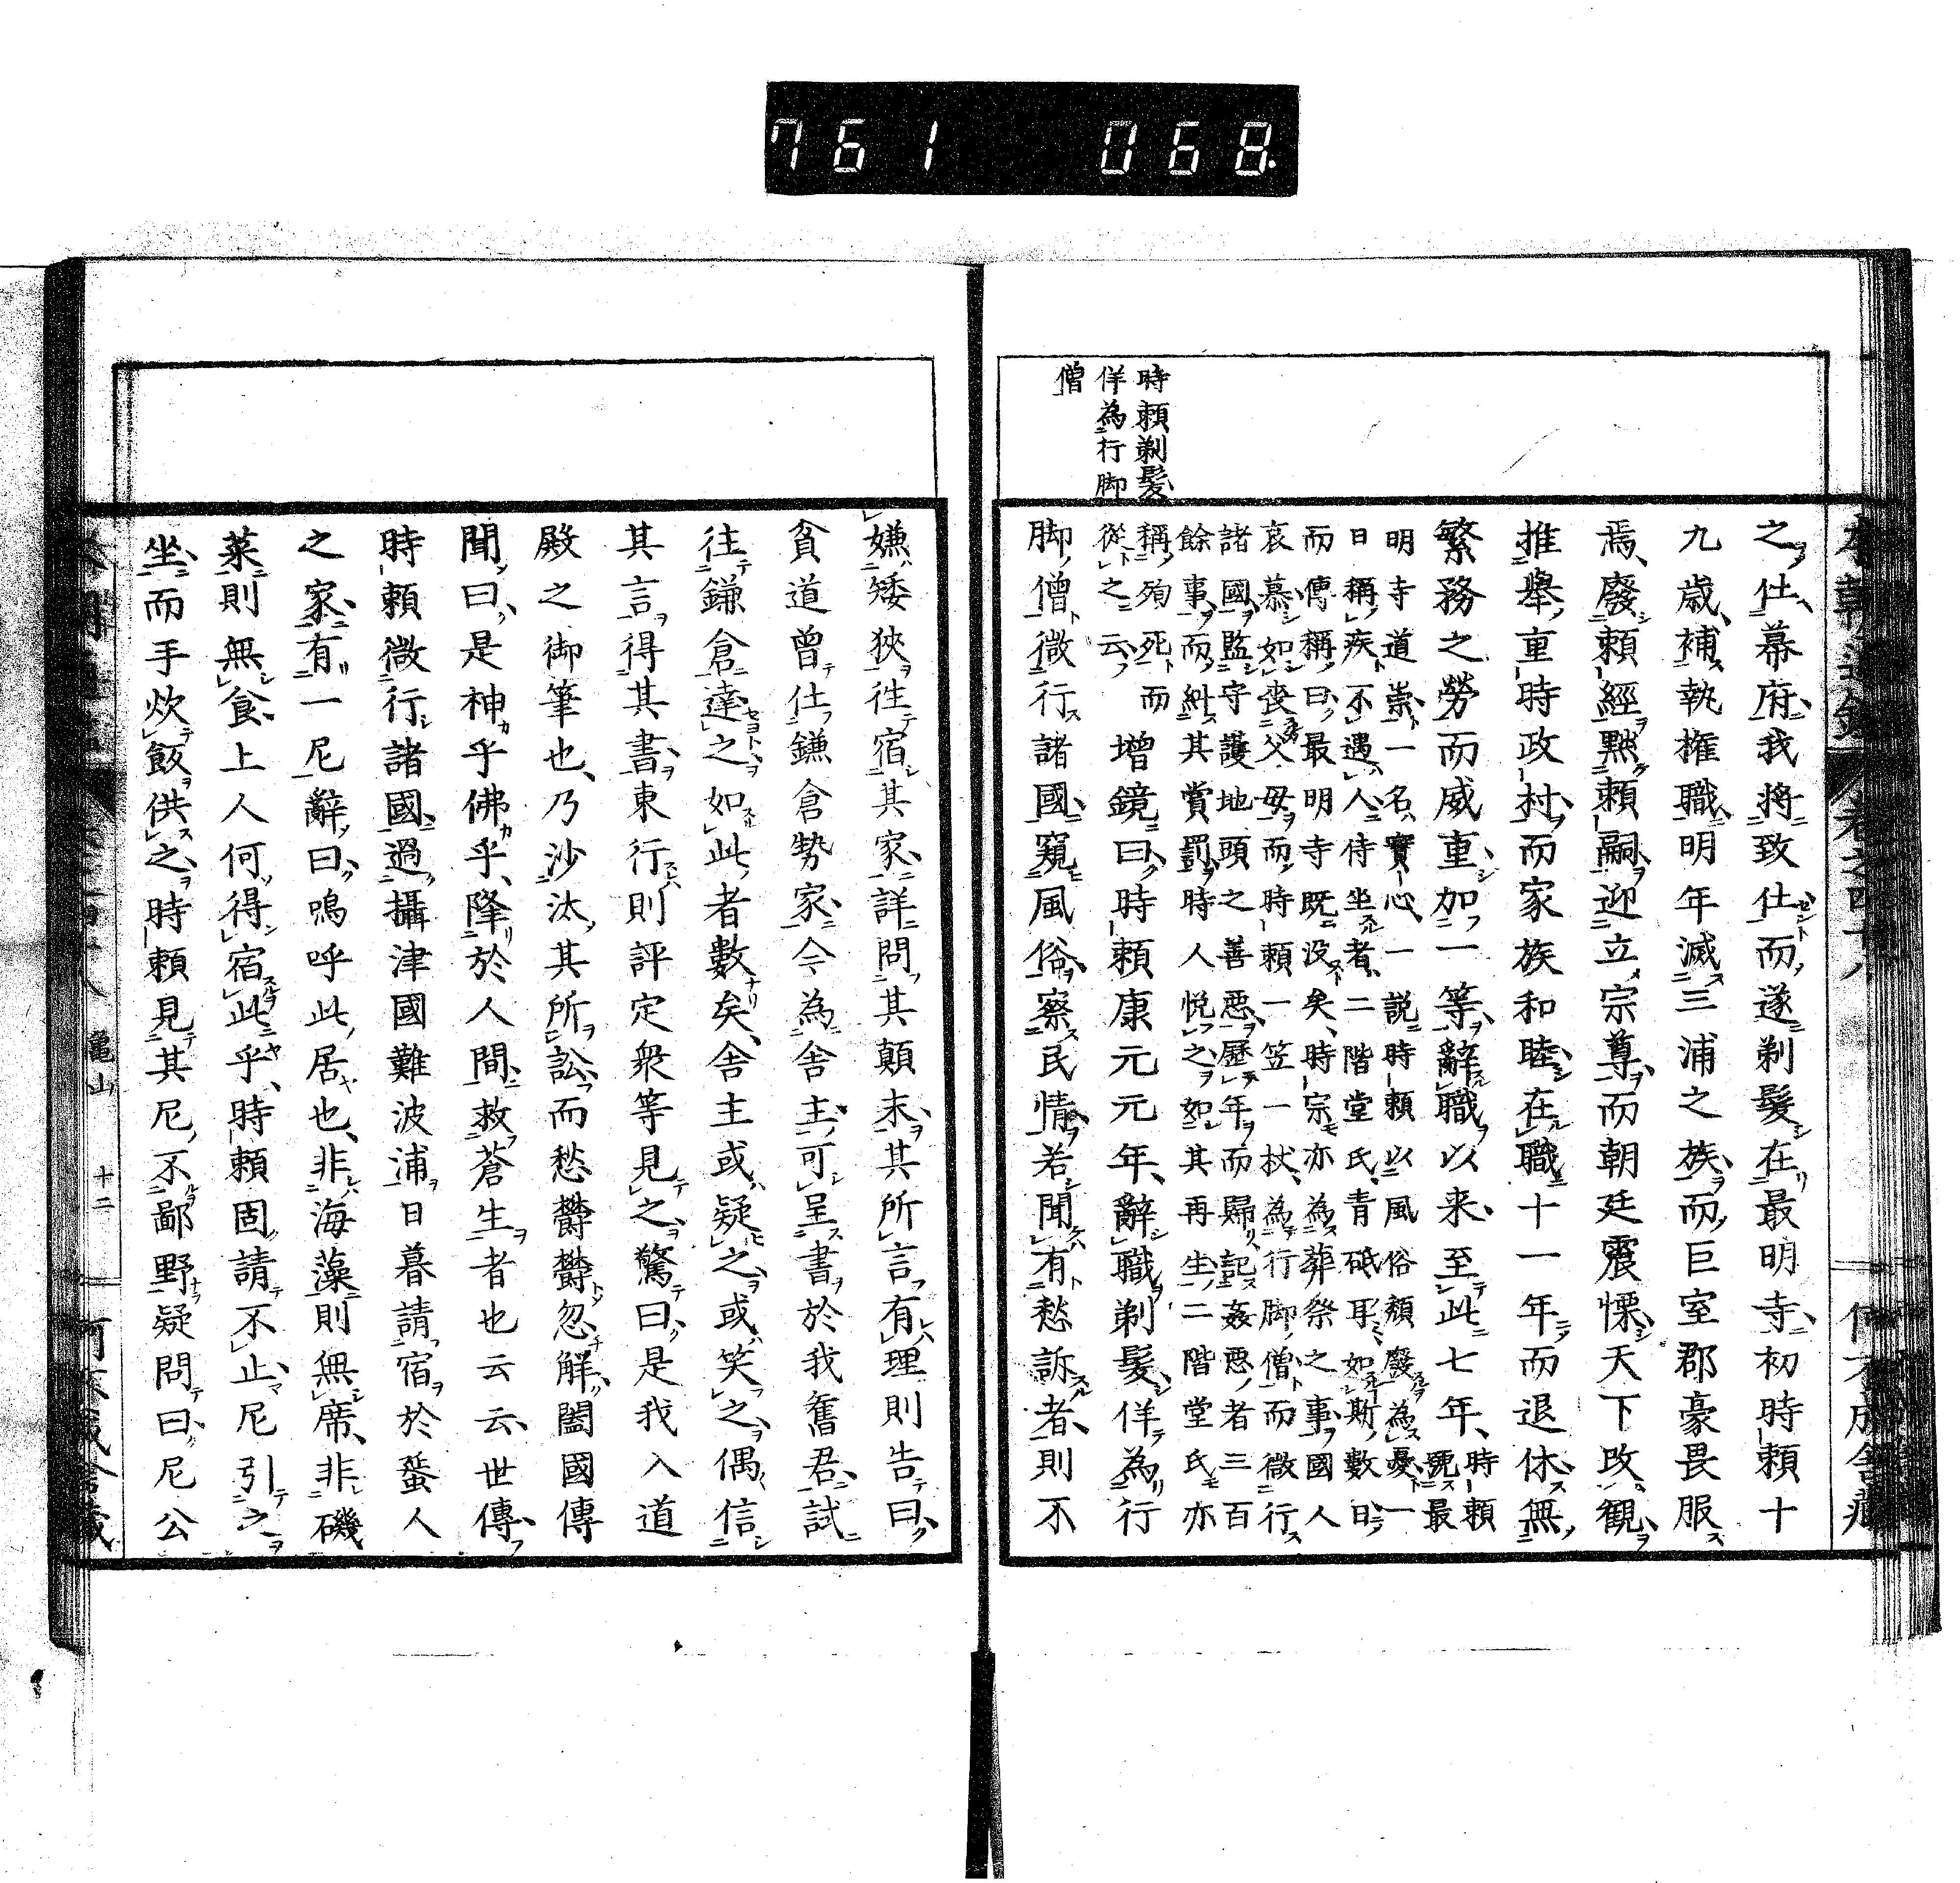 761 068.
時頼剃髮
佯為行脚
僧
之仕幕府我將致仕而遂剃髮在最明寺初時頼十
九歳補執推職明年滅三浦之族而巨室郡豪畏服
焉廢頼經黙頼嗣迎立宗尊而朝廷震慄天下改觀
推舉重時政村而家族和睦在職十一年而退休無
繁務之勞而威重加一等辭職以来至此七年時頼
號最
明寺道崇一名實心一說時頼以風俗頽廢為憂一
日稱疾不遇人侍坐者二階堂氏青砥耳如斯數日
而傳稱曰最明寺既没矣時宗亦為葬祭之事國人
哀慕如喪父母而時頼一笠一杖為行脚僧而微行
諸國監守護地頭之善惡歷年而歸記姦惡者三百
餘事而糾其賞罰時人悦之如其再生二階堂氏亦
稱殉死而
從之云
增鏡曰時頼康元元年辭職剃髮佯為行
脚僧微行諸國窺風俗察民情若聞有愁訴者則不
嫌矮狹往宿其家詳問其顛末其所言有理則告曰
貧道曾仕鎌倉勢家今為舍主可呈書於我舊君試
往鎌倉達之如此者數矣舍主或疑之或笑之偶信
其言得其書東行則評定衆等見之驚曰是我入道
殿之御筆也乃沙汰其所訟而愁欝欝忽解闔國傳
聞曰是神乎佛乎降於人間救蒼生者也云云世傳
時頼微行諸國過攝津國難波浦日暮請宿於蜑人
之家有一尼辭曰嗚呼此居也非海藻則無席非磯
菜則無食上人何得宿此乎時頼固請不止尼引之
坐而手炊飯供之時頼見其尼不鄙野疑問曰尼公
亀山 十二